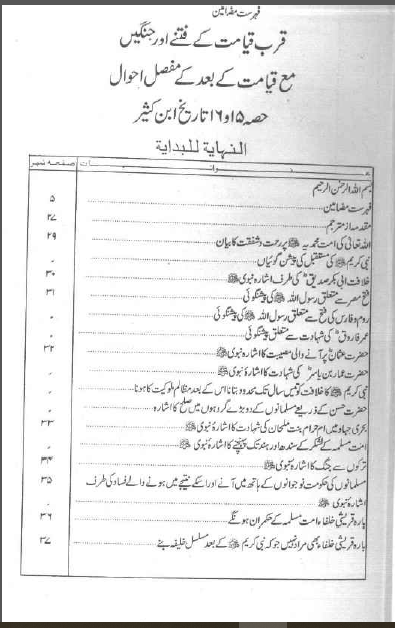 فہرست مضامین
قرب قیامت کے فتنے اور جنگیں
مع قیامت کے بعد کے مفصل احوال
حصہ ۱۵ و ۱۶ تاریخ ابن کثیر
النہایة للبدایة
عنوانات صفحہ نمبر
بسم اللہ الرحمٰن الرحیم
فہرست مضامین ۵
مقدمہ از مترجم ۲۷
اللہ تعالیٰ کی امت محمدیہ ﷺ پر رحمت و شفقت کا بیان ۲۹
نبی کریم ﷺ کی مستقبل کی پیشن گوئیاں ۔
خلافت ابی بکر صدیقؓ کی طرف اشارہ نبوی ﷺ ۳۰
فتح مصر سے متعلق رسول اللہ ﷺ کی پیشگوئی ۳۱
روم و فارس کی فتح سے متعلق رسول اللہ ﷺ کی پیشگوئی ۔
عمر فاروقؓ کی شہادت سے متعلق پیشگوئی ۔
حضرت عثمانؓ پر آنے والی مصیبت کا اشارہ نبوی ﷺ ۳۲
حضرت عمار بن یاسرؓ کی شہادت کا اشارہ نبوی ﷺ ۔
نبی کریم ﷺ کا خلافت کو تیس سال تک محدود بتانا اس کے بعد مظالم ملوکیت کا ہونا ۔
حضرت حسن کے ذریعے مسلمانوں کے دو بڑے گروہوں میں صلح کا اشارہ ۔
بحری جہاد میں ام حرام بنت ملحان کی شہادت کا اشارہ نبوی ﷺ ۳۳
امت مسلمہ کے لشکر کے سندھ اور ہند تک پہنچنے کا اشارہ نبوی ﷺ ۔
ترکوں سے جنگ کا اشارہ نبوی ﷺ ۳۴
مسلمانوں کی حکومت نوجوانوں کے ہاتھ میں آنے اور اسکے نتیجے میں ہونے والے فساد کی طرف ۳۵
اشارہ نبوی ﷺ ۔
بارہ قریشی خلفاء امت مسلمہ کے حکمران ہونگے ۳۶
بارہ قریشی خلفاء بھی مراد نہیں جو کہ نبی کریم ﷺ کے بعد مسلسل خلیفہ بنے ۳۷